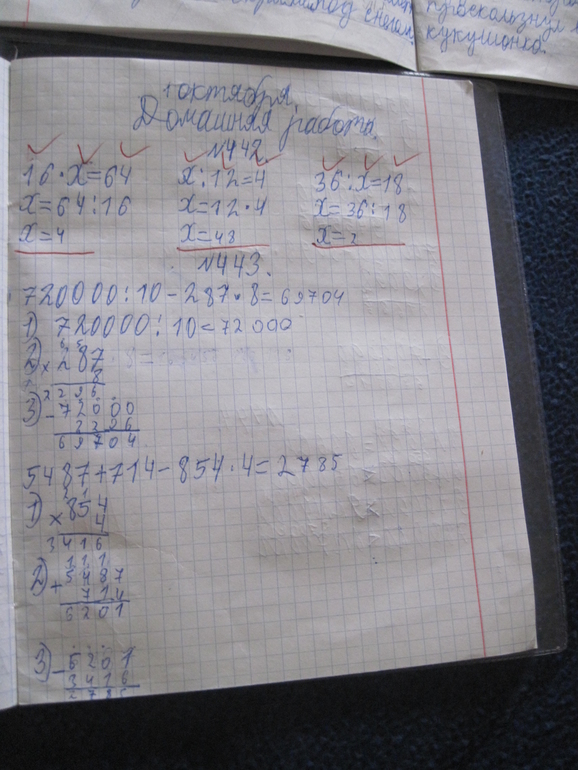 проскользнул
кукушонка.
1 октября.
Домашняя работа.
№442.
16·x=64 x:12=4 36:x=18
x=64:16 x=12·4 x=36:18
x=4 x=48 x=2
№443.
720000:10-287·8=69704
1) 720000:10=72000
2) ×287
8
2296
3) -72000
2296
69704
5487+714-854·4=2785
1) ×854
4
3416
2) +5487
714
6201
3) -6201
3416
2785